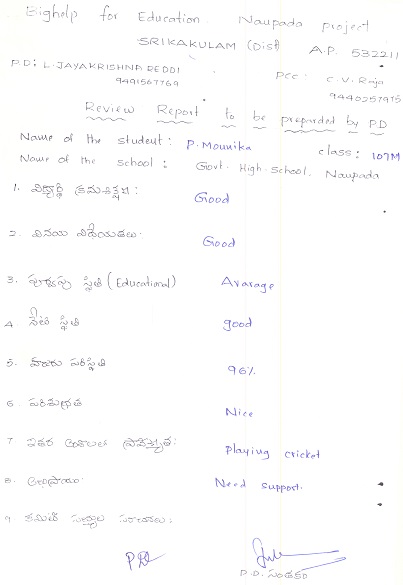 Bighelp for Education Naupada project
SRIKAKULAM (Dist) A.P. 532211
P.D: L. JAYAKRISHNA REDDI PCC: C.V. Raja
9491567769 9440257975
Review Report to be preparded by PD
Name of the student: P. Mounika class: 10TM
Name of the school: Govt. High. School. Naupada
1. విద్యార్థి క్రమశిక్షణ: Good
2. వినయ విధేయతలు: Good
3. పూర్వపు స్థితి (Educational) Avarage
4. నేటి స్థితి good
5. హాజరు పరిస్థితి 96%
6. పరిశుభ్రత Nice
7. ఇతర అంశాలలో ప్రావీణ్యత: playing cricket
8. అభిప్రాయం: Need support.
9. కమిటీ సభ్యుల సూచనలు:
P.D. సంతకం